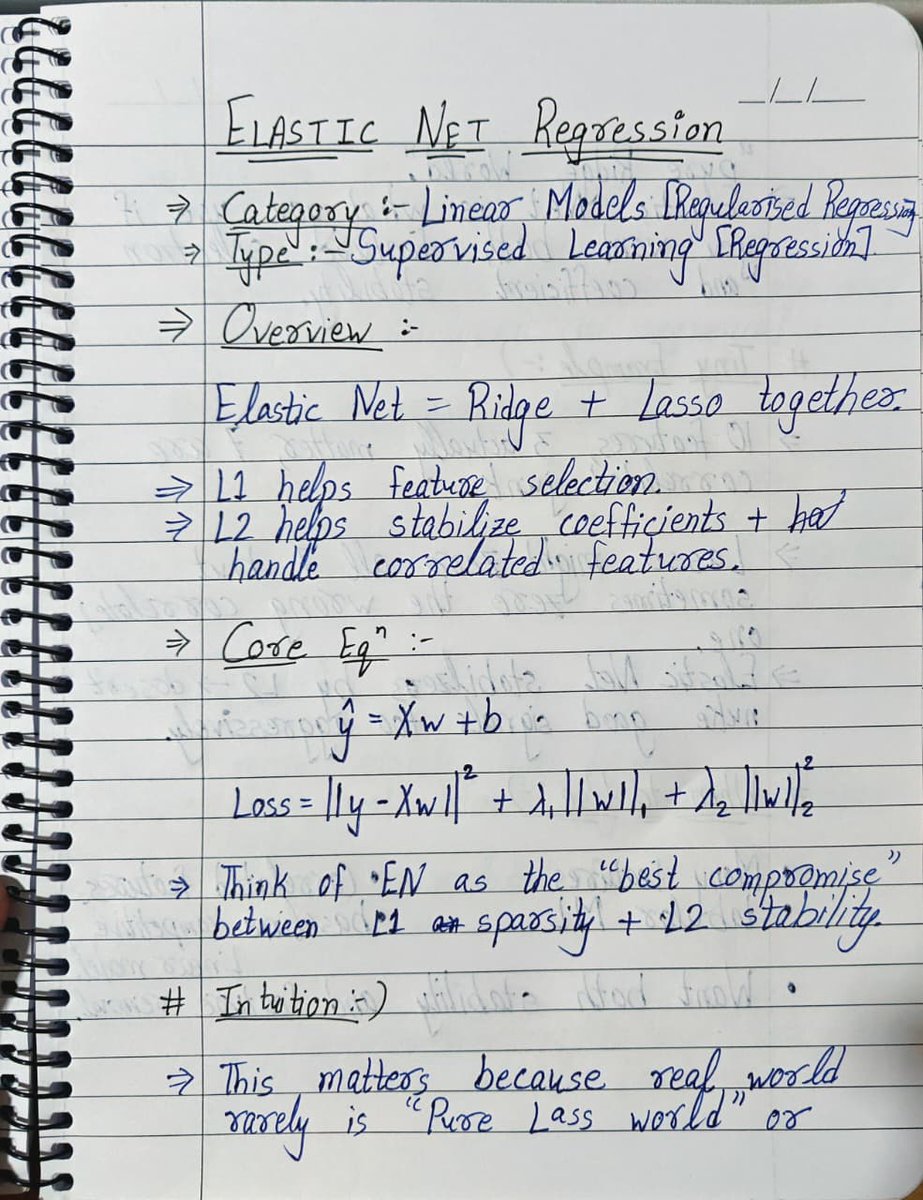 _/_/__
ELASTIC NET Regression
⇒ Category :- Linear Models [Regularised Regression]
⇒ Type :- Supervised Learning [Regression].
⇒ Overview :-
Elastic Net = Ridge + Lasso together.
⇒ L1 helps feature selection.
⇒ L2 helps stabilize coefficients +
handle correlated features.
⇒ Core Eqⁿ :-
ŷ = Xw + b
Loss = ||y - Xw||² + λ₁ ||w||₁ + λ₂ ||w||₂²
⇒ Think of EN as the "best compromise"
between L1 sparsity + L2 stability.
# Intuition :-)
⇒ This matters because real world
rarely is "Pure Lass world" or